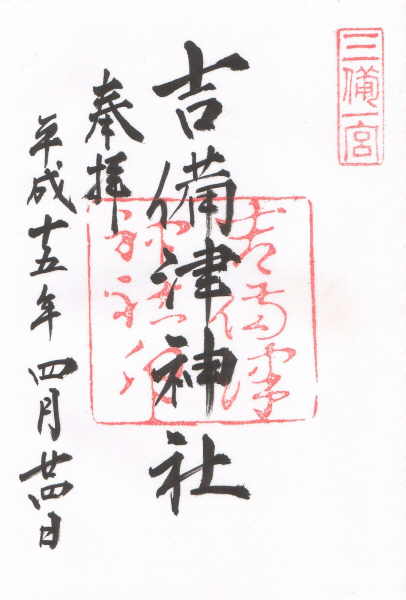 三備一宮
吉備津神社
奉拝
平成十五年四月廿四日